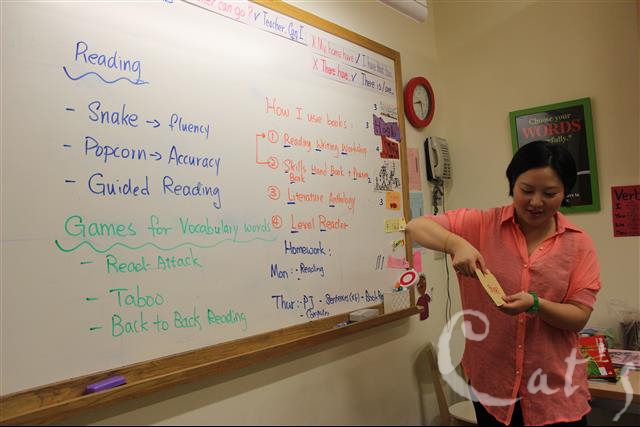 can go? ✓ Teacher. Can I
X My home have ✓ I have
X There have ✓ There is/are
Reading
- Snake → fluency
- Popcorn → Accuracy
- Guided Reading
Games for Vocabulary words
- Read-Attack
- Taboo
- Back to Back Reading
How I use books:
① Reading Writing Workshop
② Skills Hand Book + 
Book Book
③ Literature Anthology
④ Level Reader
Homework:
Mon: - Reading
Thur: PJ - Sentences
- Computer
Choose your
WORDS
Verb
Cat's